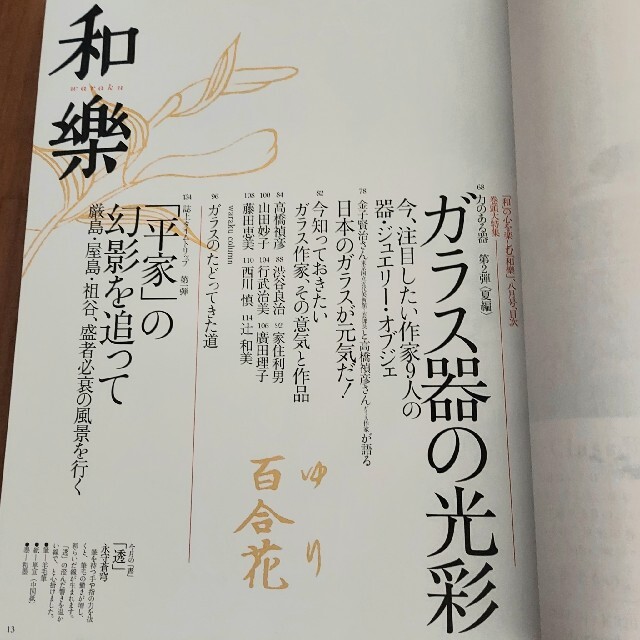 和樂
waraku
「和」の心を楽しむ「和樂」八月号、目次
巻頭大特集
68 力のある器 第2弾〈夏編〉
ガラス器の光彩
今、注目したい作家9人の
器・ジュエリー・オブジェ
78 金子賢治さんと高橋禎彦さんが語る
日本のガラスが元気だ!
82 今知っておきたい
ガラス作家、その意気と作品
84 高橋禎彦 88 渋谷良治 92 家住利男
100 山田妙子 104 行武治美 106 廣田理子
108 藤田恵美 110 西川 慎 114 辻 和美
waraku column
96 ガラスのたどってきた道
134 誌上タイムトリップ 第一弾
「平家」の
幻影を追って
厳島・屋島・祖谷、盛者必衰の風景を行く
ゆり
百合花
今月の「書」
「透」
永守蒼穹
筆を持つ手や指の力を抜
くと、筆毛の動きが増し、
●墨—和墨
13